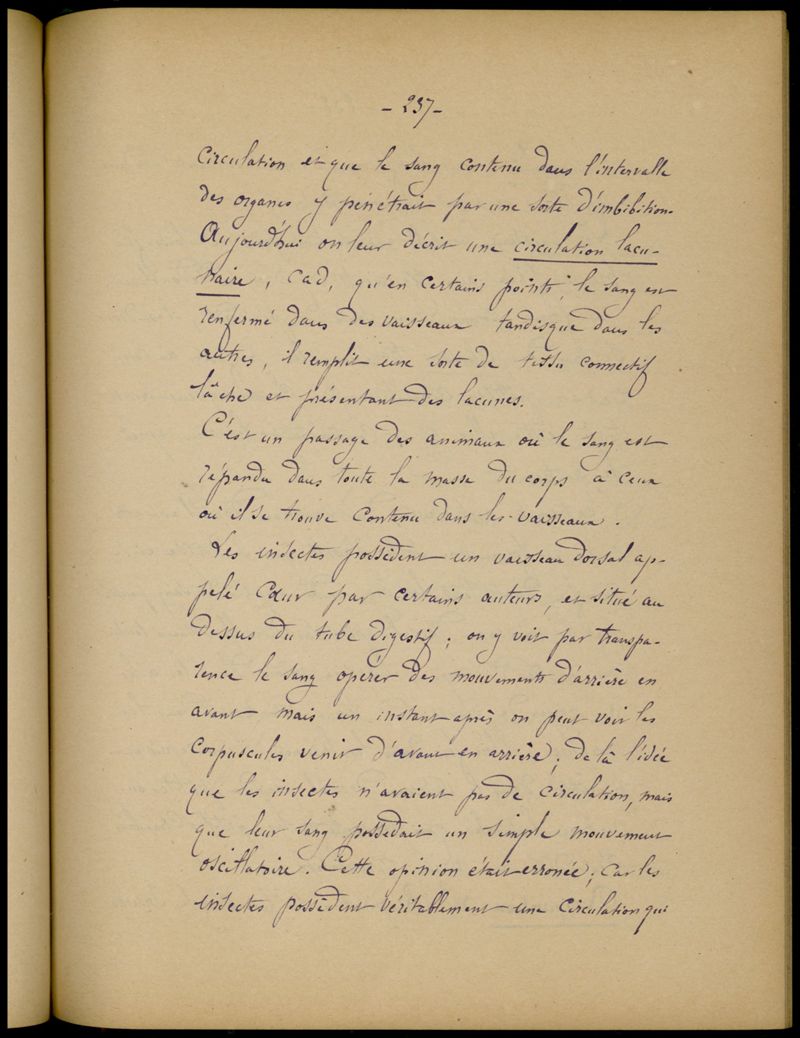 - 237 -
circulation et que le sang contenu dans l'intervalle
des organes y pénétrait par une sorte d'imbibition.
Aujourd'hui on leur décrit une circulation lacu-
naire, cad, qu'en certains points, le sang est
renfermé dans des vaisseaux tandisque dans les
autres, il remplit une sorte de tissu connectif
lâche et présentant des lacunes.
C'est un passage des animaux où le sang est
répandu dans toute la masse du corps à ceux
où il se trouve contenu dans les vaisseaux.
Les insectes possèdent un vaisseau dorsal ap-
pelé Cœur par certains auteurs, et situé au
dessus du tube digestif; on y voit par transpa-
rence le sang opérer des mouvements d'arrière en
avant mais un instant après on peut voir les
corpuscules venir d'avant en arrière; de là l'idée
que les insectes n'avaient pas de circulation, mais
que leur sang possédait un simple mouvement
oscillatoire. Cette opinion était erronée; car les
insectes possèdent véritablement une circulation qui